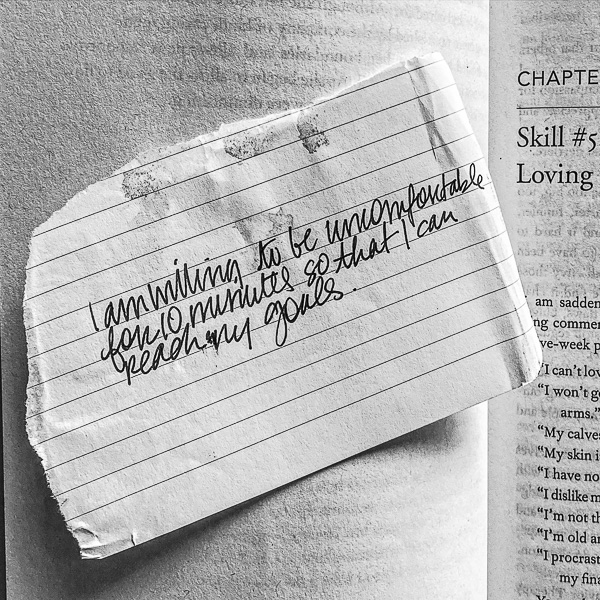 I am willing to be uncomfortable
for 10 minutes so that I can
reach my goals.
CHAPTE
Skill #5
Loving
am sadden
ng commen
ve-week p
"I can't lov
"I won't g
arms."
"My calves
"My skin i
"I have no
"I dislike m
"I'm not th
"I'm old an
"I procrast
my fina